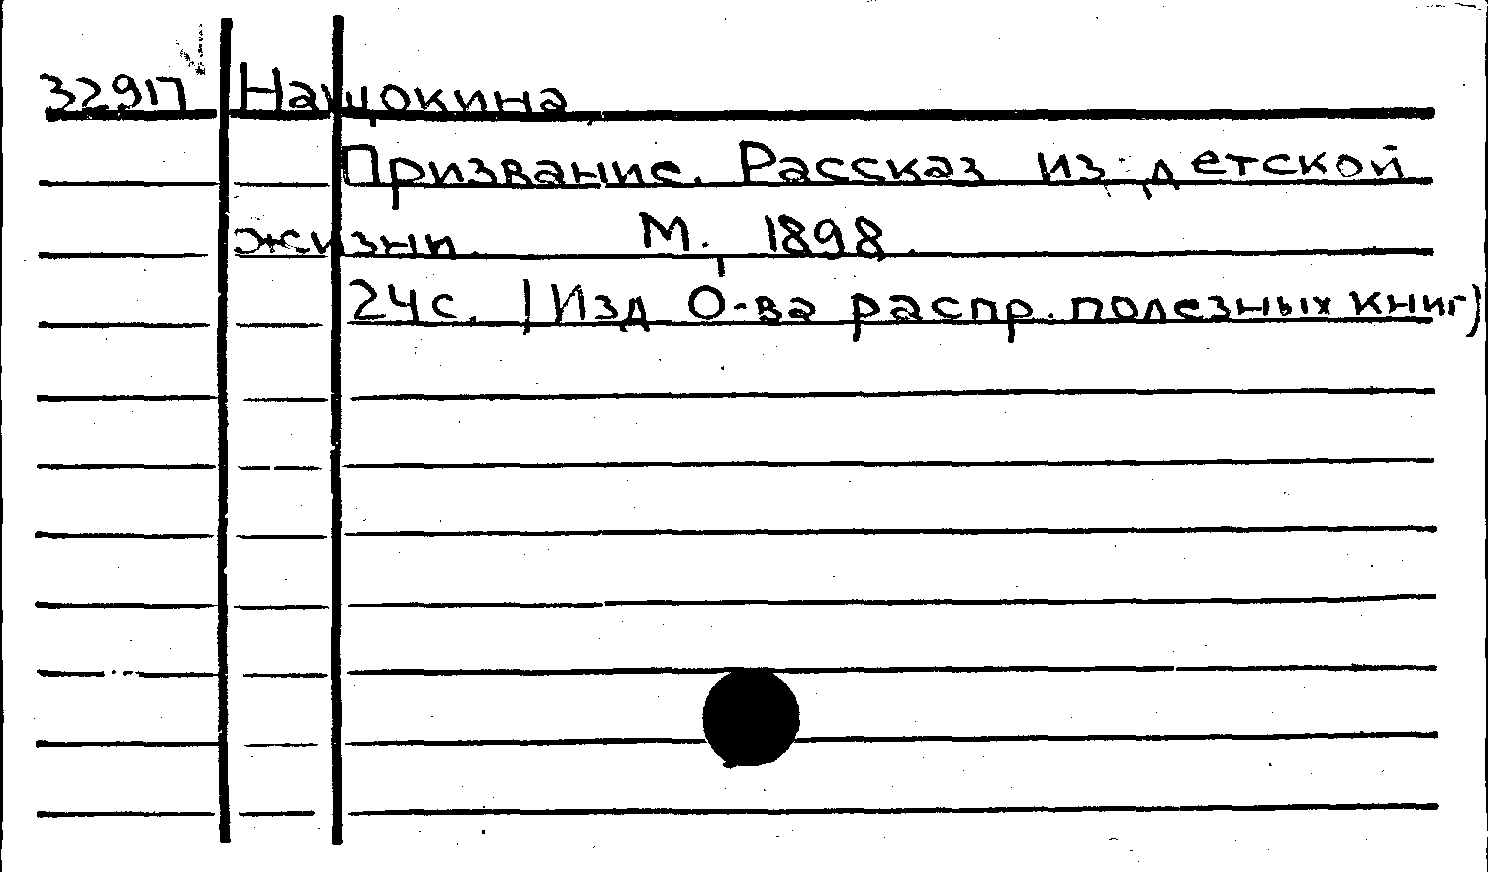 32917 Нащокина
Призвание. Рассказ из детской
жизни. М., 1898.
24с. (Изд О-ва распр. полезных книг)